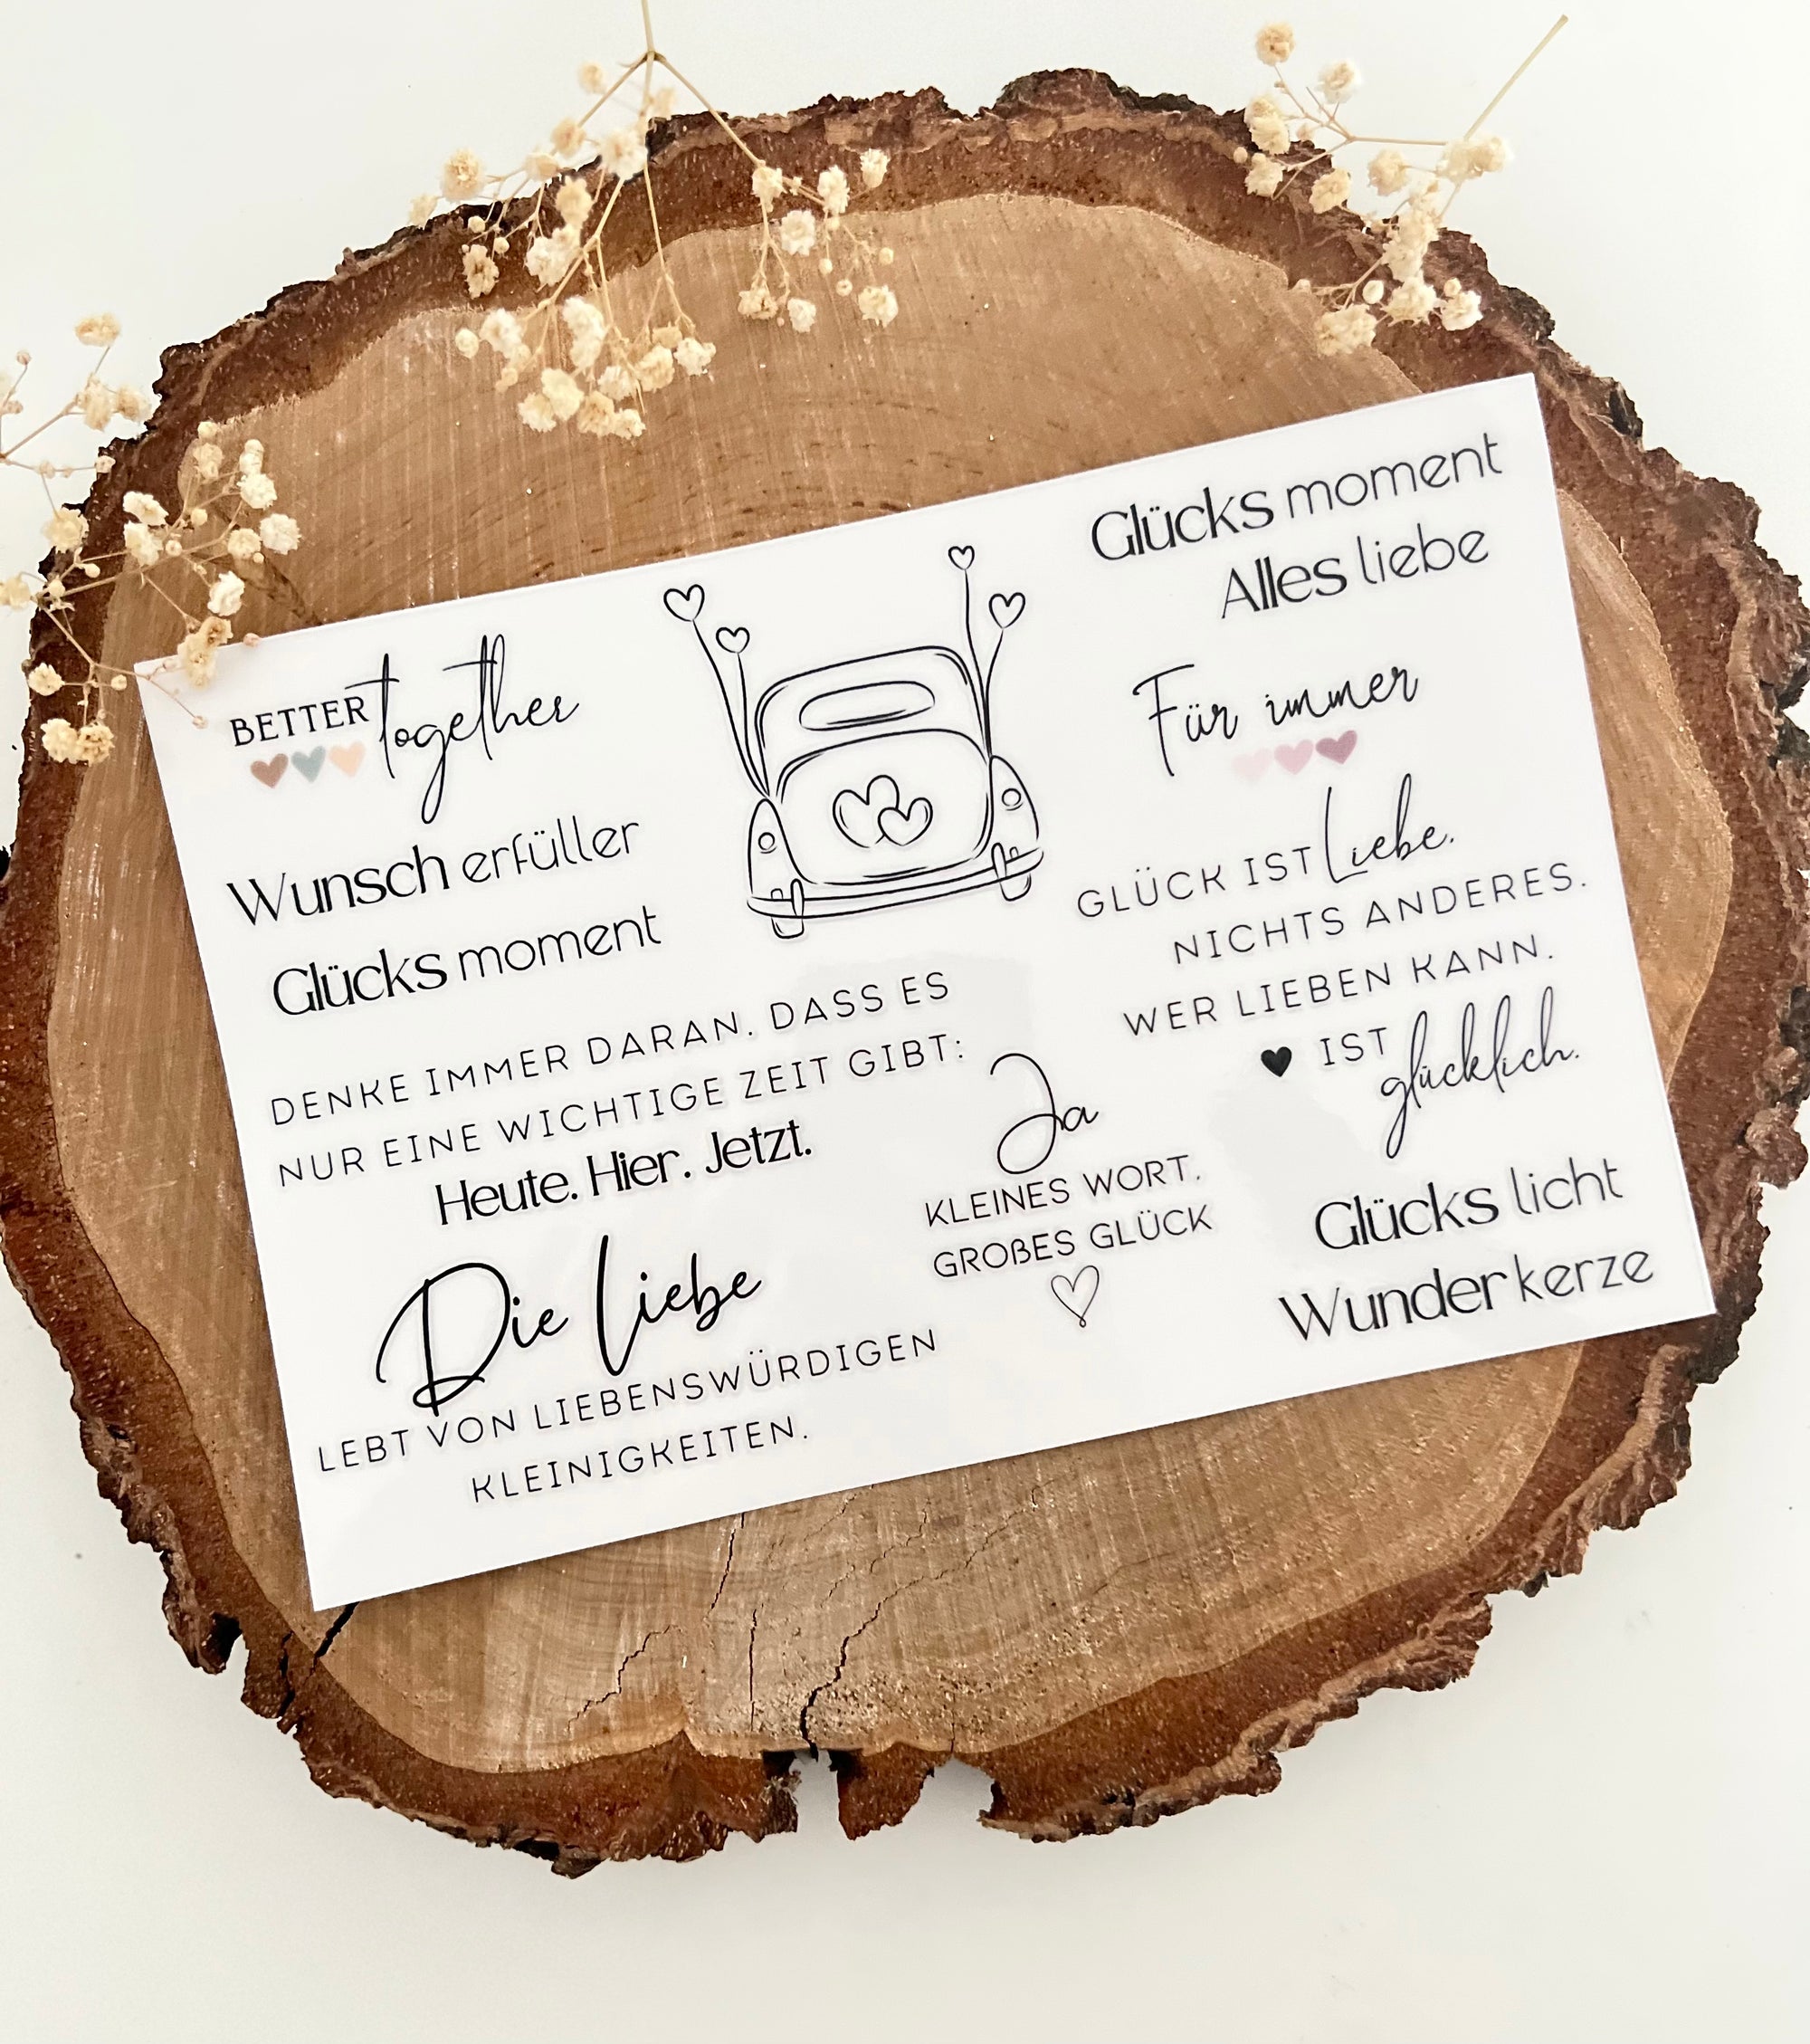 BETTER together
Wunsch erfüller
Glücks moment
DENKE IMMER DARAN, DASS ES
NUR EINE WICHTIGE ZEIT GIBT:
Heute. Hier. Jetzt.
Die Liebe
LEBT VON LIEBENSWÜRDIGEN
KLEINIGKEITEN.
Ja
KLEINES WORT,
GROßES GLÜCK
Glücks moment
Alles liebe
Für immer
GLÜCK IST Liebe.
NICHTS ANDERES.
WER LIEBEN KANN.
IST glücklich.
Glücks licht
Wunder kerze